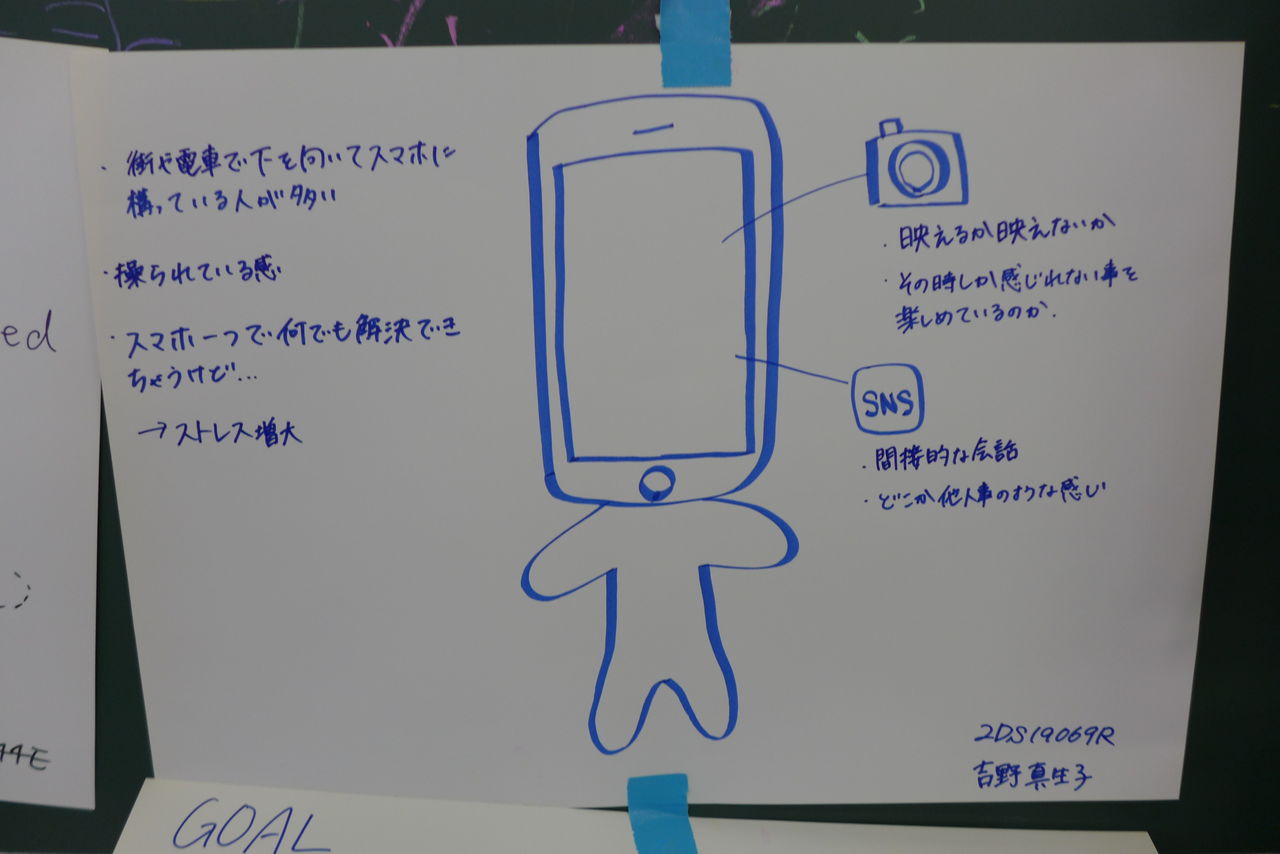 ・街や電車で下を向いてスマホに
構っている人が多い
・操られている感
・スマホ一つで何でも解決でき
ちゃうけど…
→ストレス増大
・映えるか映えないか
・その時しか感じれない事を
楽しめているのか.
SNS
・間接的な会話
・どこか他人事のような感じ
2DS19069R
吉野真生子
ed
GOAL